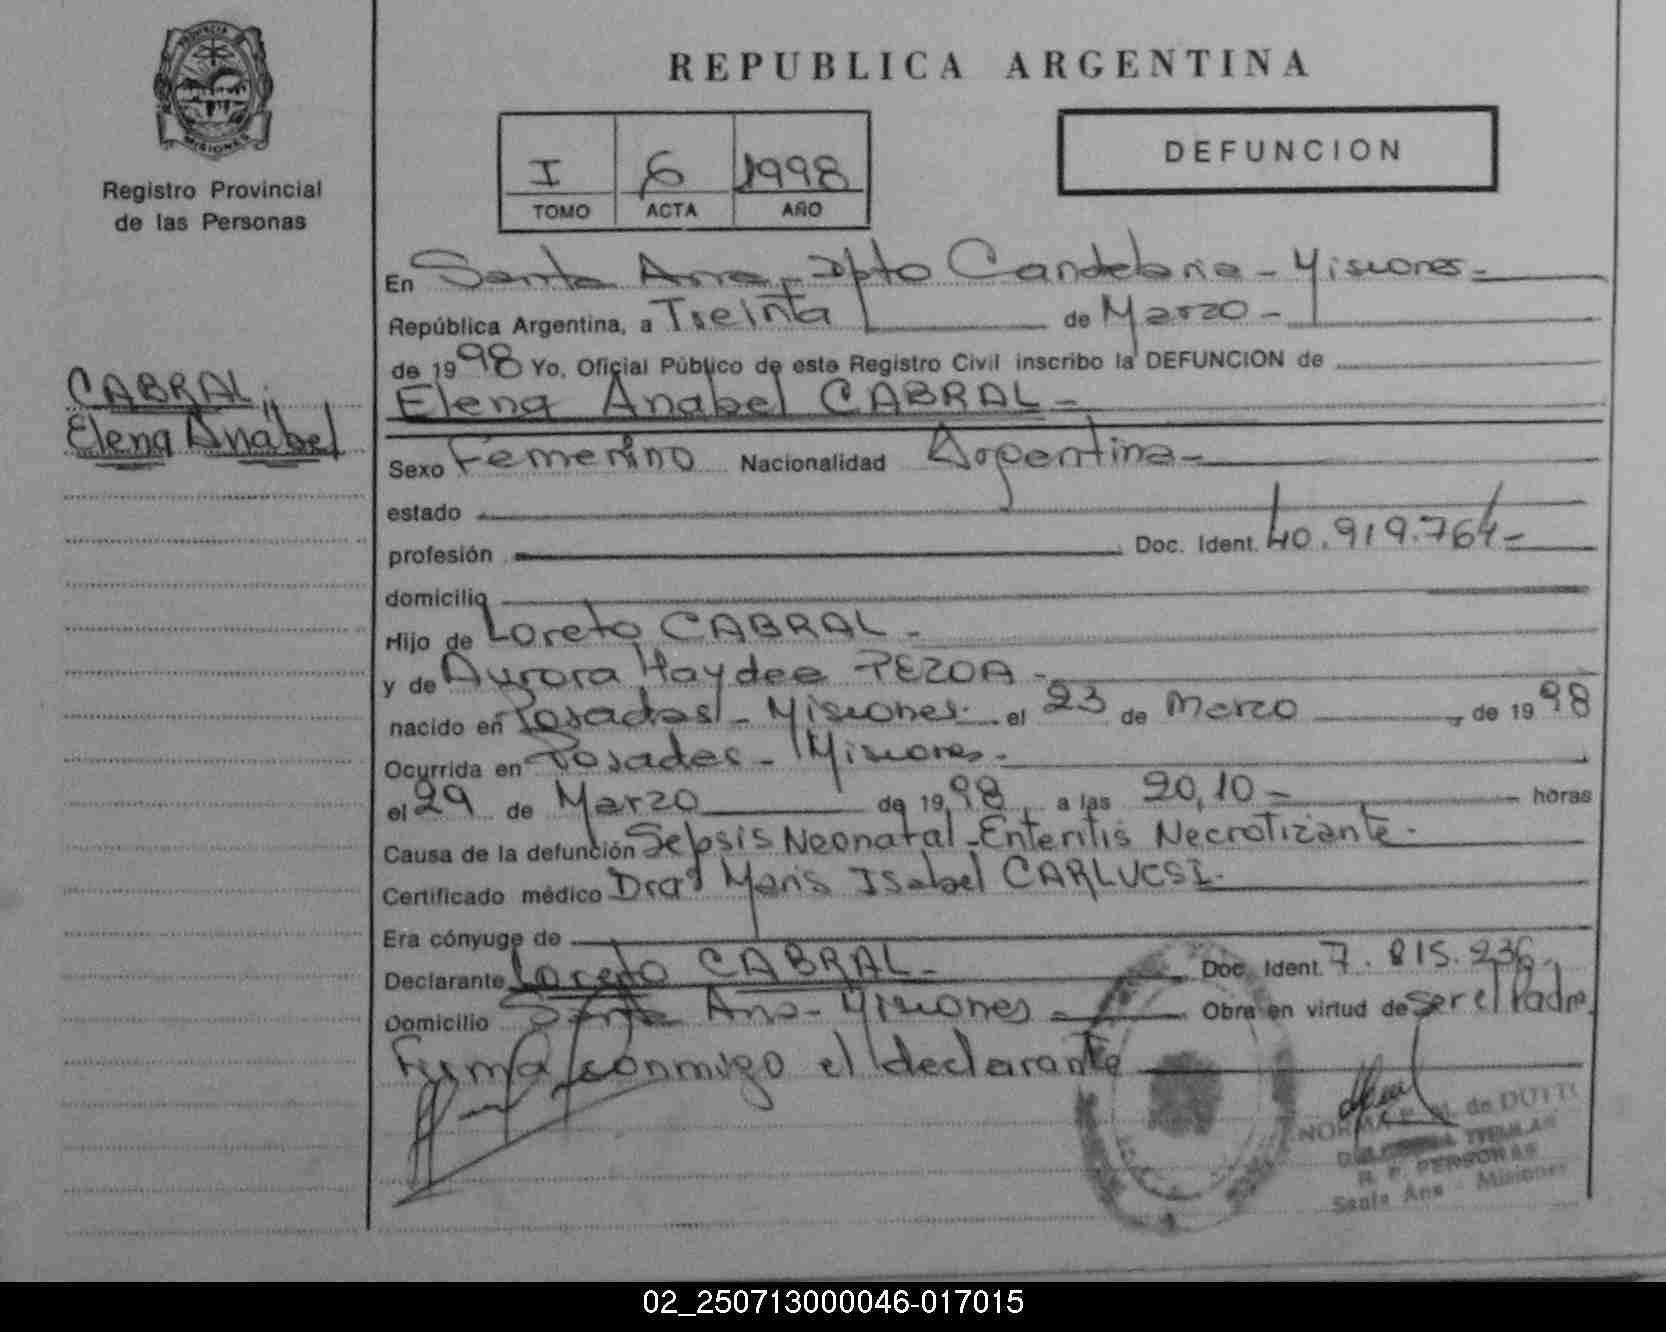 PROVINCIA
MISIONES
Registro Provincial
de las Personas
CABRAL,
Elena Anabel
REPUBLICA ARGENTINA
I 6 1998
TOMO ACTA AÑO
DEFUNCION
En Santa Ana, Dpto Candelaria - Misiones -
República Argentina, a Treinta de Marzo -
de 1998 Yo, Oficial Público de este Registro Civil inscribo la DEFUNCION de
Elena Anabel CABRAL -
Sexo Femenino Nacionalidad Argentina -
estado
profesión Doc. Ident. 40.919.764 -
domicilio
Hijo de Loreto CABRAL -
y de Aurora Haydee PEZOA -
nacido en Posadas - Misiones - el 23 de Marzo de 1998
Ocurrida en Posadas - Misiones -
el 29 de Marzo de 1998 a las 20,10 - horas
Causa de la defunción Sepsis Neonatal - Enteritis Necrotizante -
Certificado médico Dra Maris Isabel CARLUCSI -
Era cónyuge de
Declarante Loreto CABRAL - Doc. Ident. 7.815.236 -
Domicilio Santa Ana - Misiones Obra en virtud de Ser el Padre
Firma conmigo el declarante
NORMA de DUTTO
TITULAR
R. P. PERSONAS
Santa Ana - Misiones
02_250713000046-017015